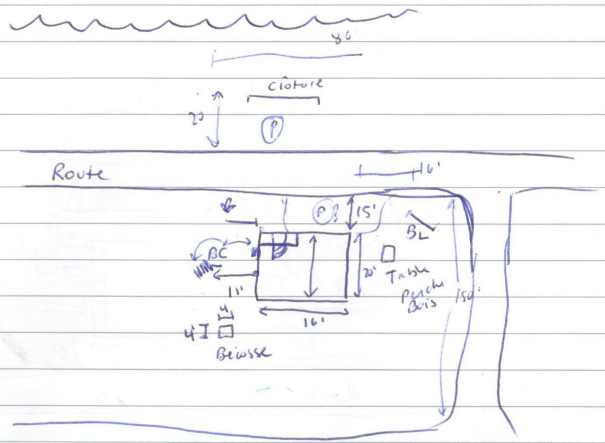 80
clôture
20
P
Route
16'
P
15'
BL
BC
20'
Table
11'
Perche
Bois
150'
16'
4'
4'
Bécosse